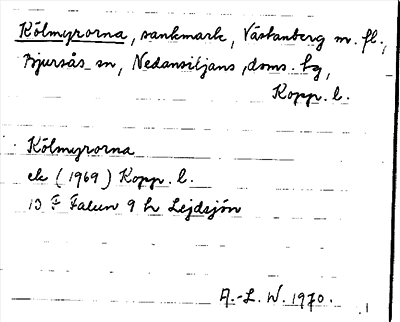 Kölmyrorna, sankmark, Västanberg m. fl.,
Bjursås sn, Nedansiljans doms. hg,
Kopp. l.
Kölmyrorna
ek (1969) Kopp. l.
13 F Falun 9 h Lejdsjön
A.-L. W. 1970.